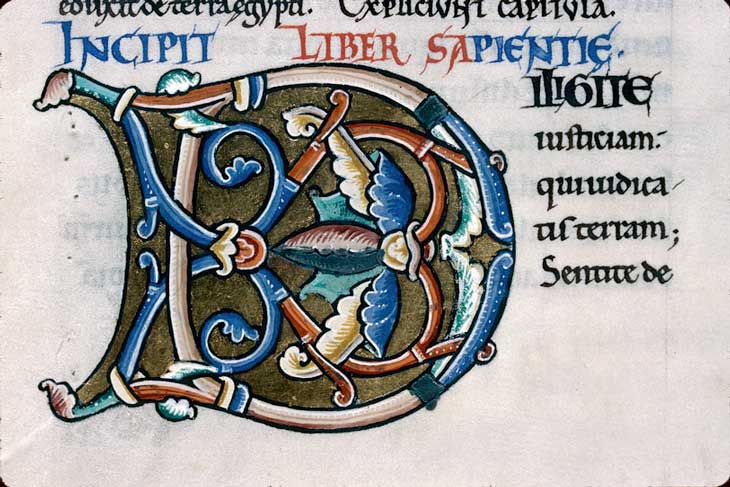 eduxit de terra egypti. Explicivnt capitvla.
Incipit Liber sapientie.
D Iligite
iusticiam:
qui iudica
tis terram;
Sentite de